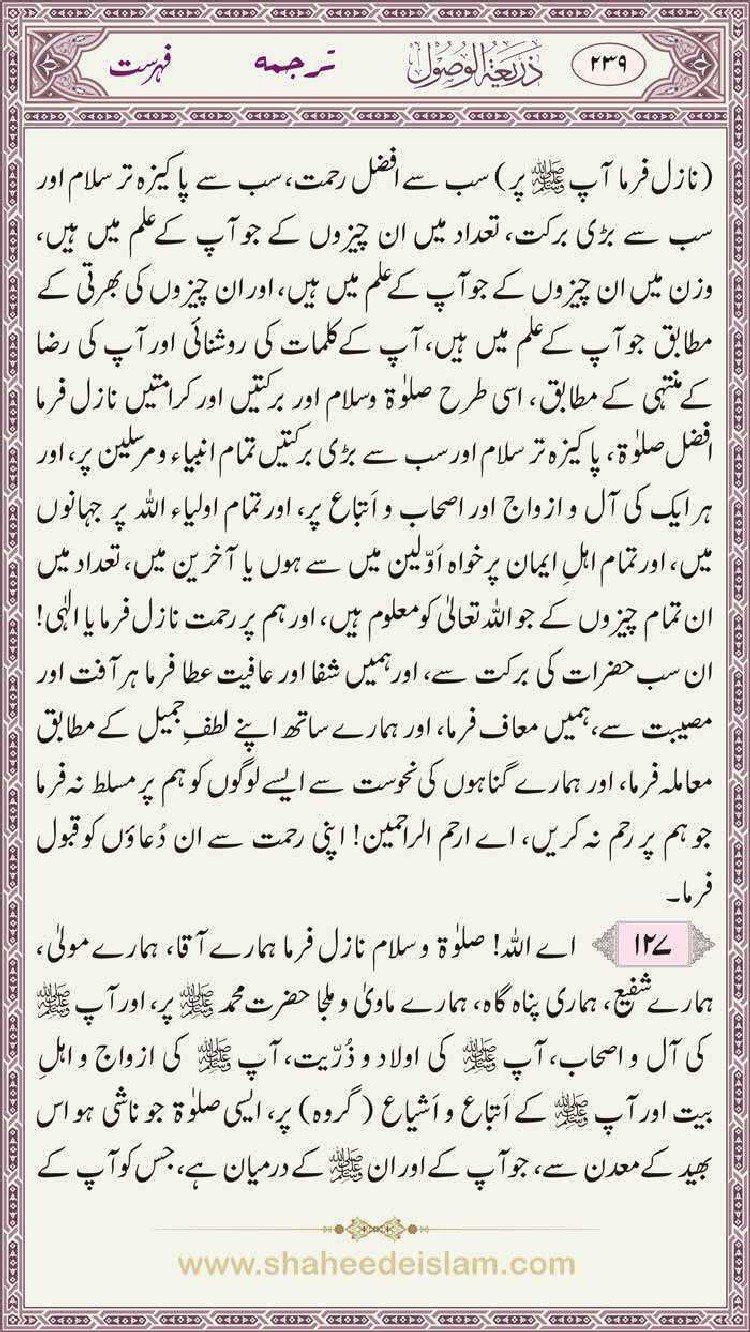 ۲۳۹ ذَرِیعَۃُ الوُصُول ترجمہ فہرست
(نازل فرما آپ ﷺ پر) سب سے افضل رحمت، سب سے پاکیزہ تر سلام اور
سب سے بڑی برکت، تعداد میں ان چیزوں کے جو آپ کے علم میں ہیں،
وزن میں ان چیزوں کے جو آپ کے علم میں ہیں، اور ان چیزوں کی بھرتی کے
مطابق جو آپ کے علم میں ہیں، آپ کے کلمات کی روشنائی اور آپ کی رضا
کے منتہی کے مطابق، اسی طرح صلوٰۃ وسلام اور برکتیں اور کرامتیں نازل فرما
افضل صلوٰۃ، پاکیزہ تر سلام اور سب سے بڑی برکتیں تمام انبیاء و مرسلین پر، اور
ہر ایک کی آل و ازواج اور اصحاب و اَتباع پر، اور تمام اولیاء اللہ پر جہانوں
میں، اور تمام اہلِ ایمان پر خواہ اَوّلین میں سے ہوں یا آخرین میں، تعداد میں
ان تمام چیزوں کے جو اللہ تعالیٰ کو معلوم ہیں، اور ہم پر رحمت نازل فرما یا الٰہی!
ان سب حضرات کی برکت سے، اور ہمیں شفا اور عافیت عطا فرما ہر آفت اور
مصیبت سے، ہمیں معاف فرما، اور ہمارے ساتھ اپنے لطفِ جمیل کے مطابق
معاملہ فرما، اور ہمارے گناہوں کی نحوست سے ایسے لوگوں کو ہم پر مسلط نہ فرما
جو ہم پر رحم نہ کریں، اے ارحم الراحمین! اپنی رحمت سے ان دُعاؤں کو قبول
فرما۔
۱۲۷ اے اللہ! صلوٰۃ و سلام نازل فرما ہمارے آقا، ہمارے مولیٰ،
ہمارے شفیع، ہماری پناہ گاہ، ہمارے ماویٰ و ملجا حضرت محمد ﷺ پر، اور آپ ﷺ
کی آل و اصحاب، آپ ﷺ کی اولاد و ذُرّیت، آپ ﷺ کی ازواج و اہلِ
بیت اور آپ ﷺ کے اَتباع و اَشیاع (گروہ) پر، ایسی صلوٰۃ جو ناشی ہو اس
بھید کے معدن سے، جو آپ کے اور ان ﷺ کے درمیان ہے، جس کو آپ کے
www.shaheedeislam.com